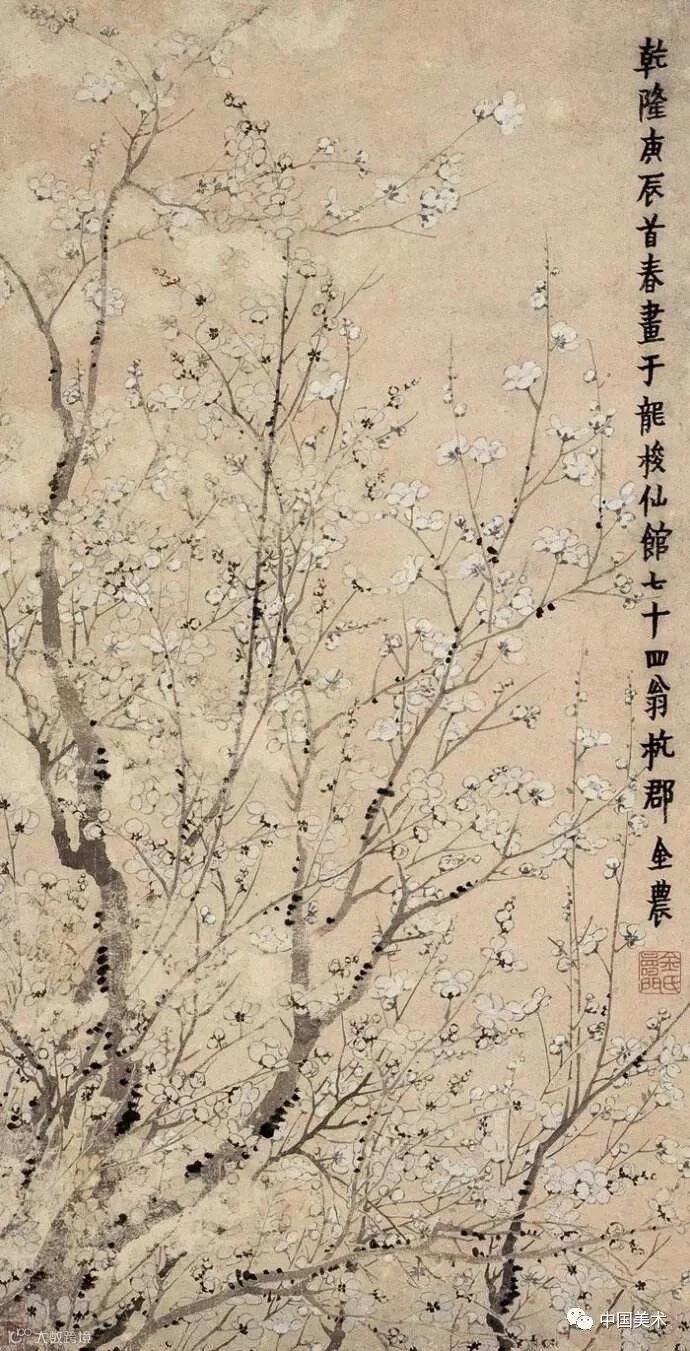 乾隆庚辰首春畫于龍梭仙館七十四翁杭郡金農
金氏
中国美术
大数跨境